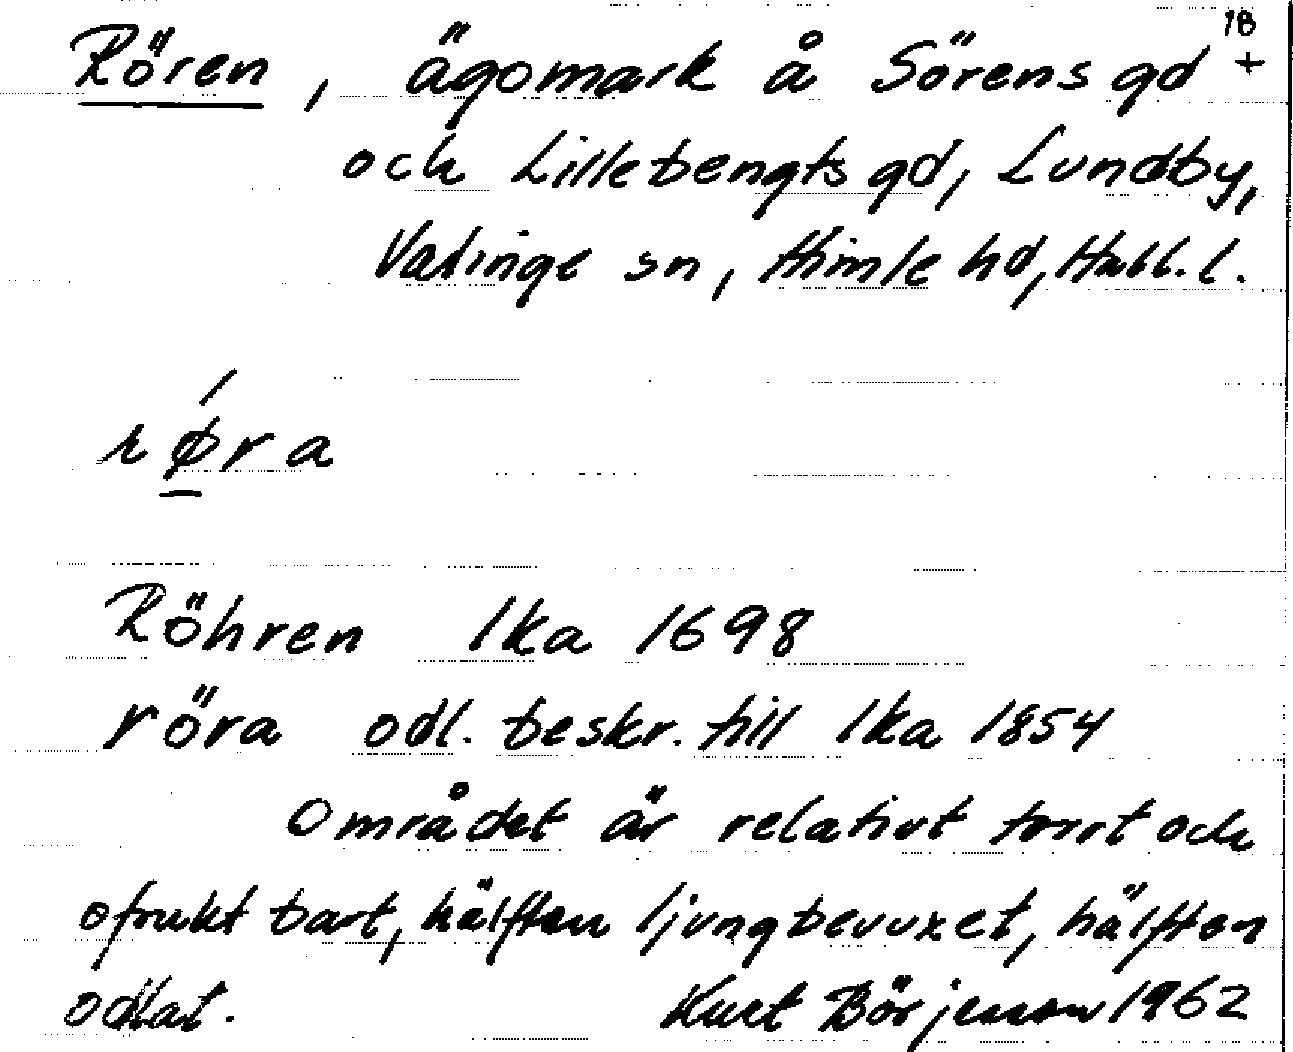 18
Rören, ägomark å Sörens gd +
och Lillebengts gd, Lundby,
Valinge sn, Himle hd, Hall. l.
røra
Röhren lka 1698
röra odl. beskr. till lka 1854
Området är relativt torrt och
ofruktbart, hälften ljungbevuxet, hälften
odlat. Kurt Börjesson 1962